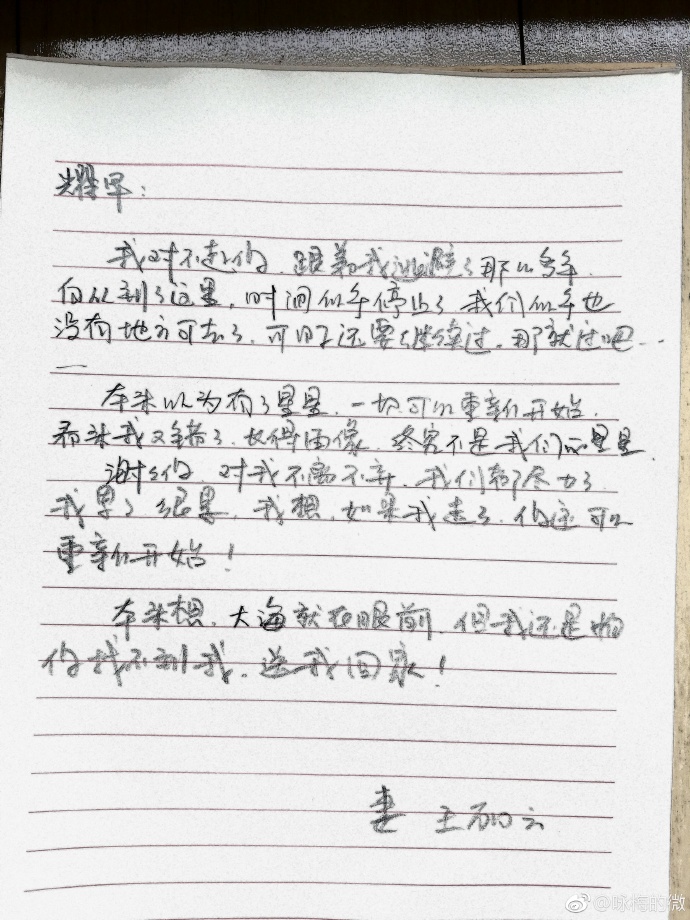 耀军：
我对不起你，跟着我逃避了那么多年，
自从到了这里，时间似乎停止了，我们似乎也
没有地方可去了，可日子还要继续过，那就过吧…
…
本来以为有了星星，一切可以重新开始，
看来我又错了，长得再像，终究不是我们的星星，
谢谢你，对我不离不弃，我们都尽力了，
我累了，很累，我想，如果我走了，你还可以
重新开始！
本来想，大海就在眼前，但我还是怕
你找不到我，送我回家！
妻 王丽云
@咏梅的微